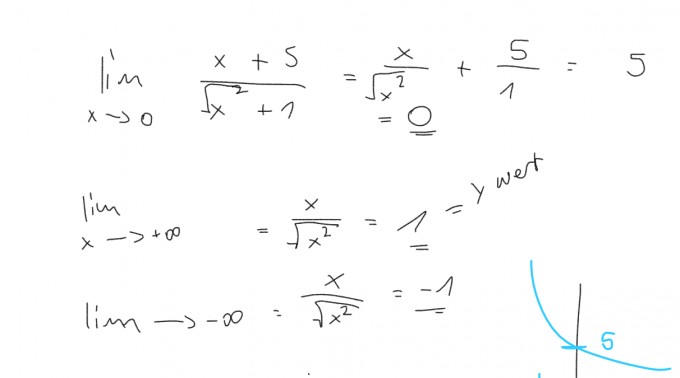 lim x→0 (x + 5)/(√x² + 1) = x/√x² + 5/1 = 5
= 0
lim x→+∞ = x/√x² = 1 = y wert
lim → -∞ = x/√x² = -1
5